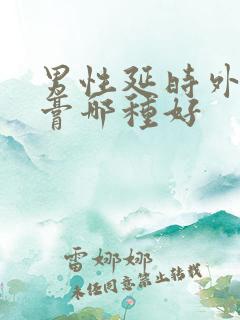 男性延時外
膏哪種好
雷娜娜
未經同意禁止转载